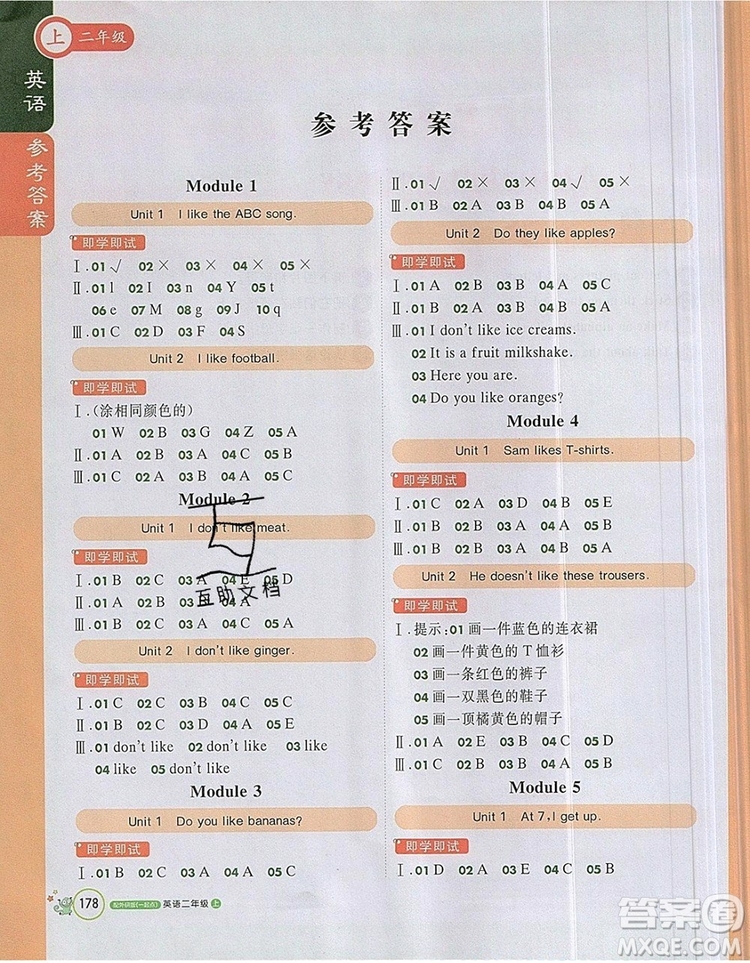 上 二年级
英语
参考答案
参考答案
Module 1
Unit 1 I like the ABC song.
即学即试
Ⅰ.01 √ 02 × 03 × 04 × 05 ×
Ⅱ.01 l 02 I 03 n 04 Y 05 t
06 e 07 M 08 g 09 J 10 q
Ⅲ.01 C 02 D 03 F 04 S
Unit 2 I like football.
即学即试
Ⅰ.(涂相同颜色的)
01 W 02 B 03 G 04 Z 05 A
Ⅱ.01 A 02 B 03 A 04 B 05 A
Ⅲ.01 C 02 B 03 A 04 B 05 A
Module 2
Unit 1 I don't like meat.
即学即试
Ⅰ.01 B 02 C 03 A 04 E 05 D
Ⅱ.01 A 02 B
Ⅲ.01 B 02 A 03 B 04 B 05 A
互助文档
Unit 2 I don't like ginger.
即学即试
Ⅰ.01 C 02 C 03 B 04 C 05 A
Ⅱ.01 B 02 C 03 D 04 A 05 E
Ⅲ.01 don't like 02 like 03 don't like
04 like 05 don't like
Module 3
Unit 1 Do you like bananas?
即学即试
Ⅰ.01 B 02 C 03 A 04 A 05 C
Ⅱ.01 √ 02 × 03 × 04 √ 05 ×
Ⅲ.01 B 02 A 03 A 04 B 05 A
Unit 2 Do they like apples?
即学即试
Ⅰ.01 A 02 C 03 B 04 A 05 C
Ⅱ.01 C 02 B 03 A 04 B 05 A
Ⅲ.01 I don't like ice creams.
02 It is a fruit milkshake.
03 Here you are.
04 Do you like oranges?
Module 4
Unit 1 Sam likes T-shirts.
即学即试
Ⅰ.01 C 02 A 03 D 04 B 05 E
Ⅱ.01 A 02 B 03 A 04 B 05 B
Ⅲ.01 B 02 A 03 A 04 B 05 B
Unit 2 He doesn't like these trousers.
即学即试
Ⅰ.提示:01 画一件蓝色的连衣裙
02 画一件黄色的T恤衫
03 画一条红色的裤子
04 画一双黑色的鞋子
05 画一顶橘黄色的帽子
Ⅱ.01 A 02 E 03 B 04 C 05 D
Ⅲ.01 C 02 B 03 B 04 A 05 A
Module 5
Unit 1 At 7, I get up.
即学即试
Ⅰ.01 A 02 B 03 A 04 B 05 C
178 配外研版(一起点) 英语二年级 上
答案圈
MXQE.COM